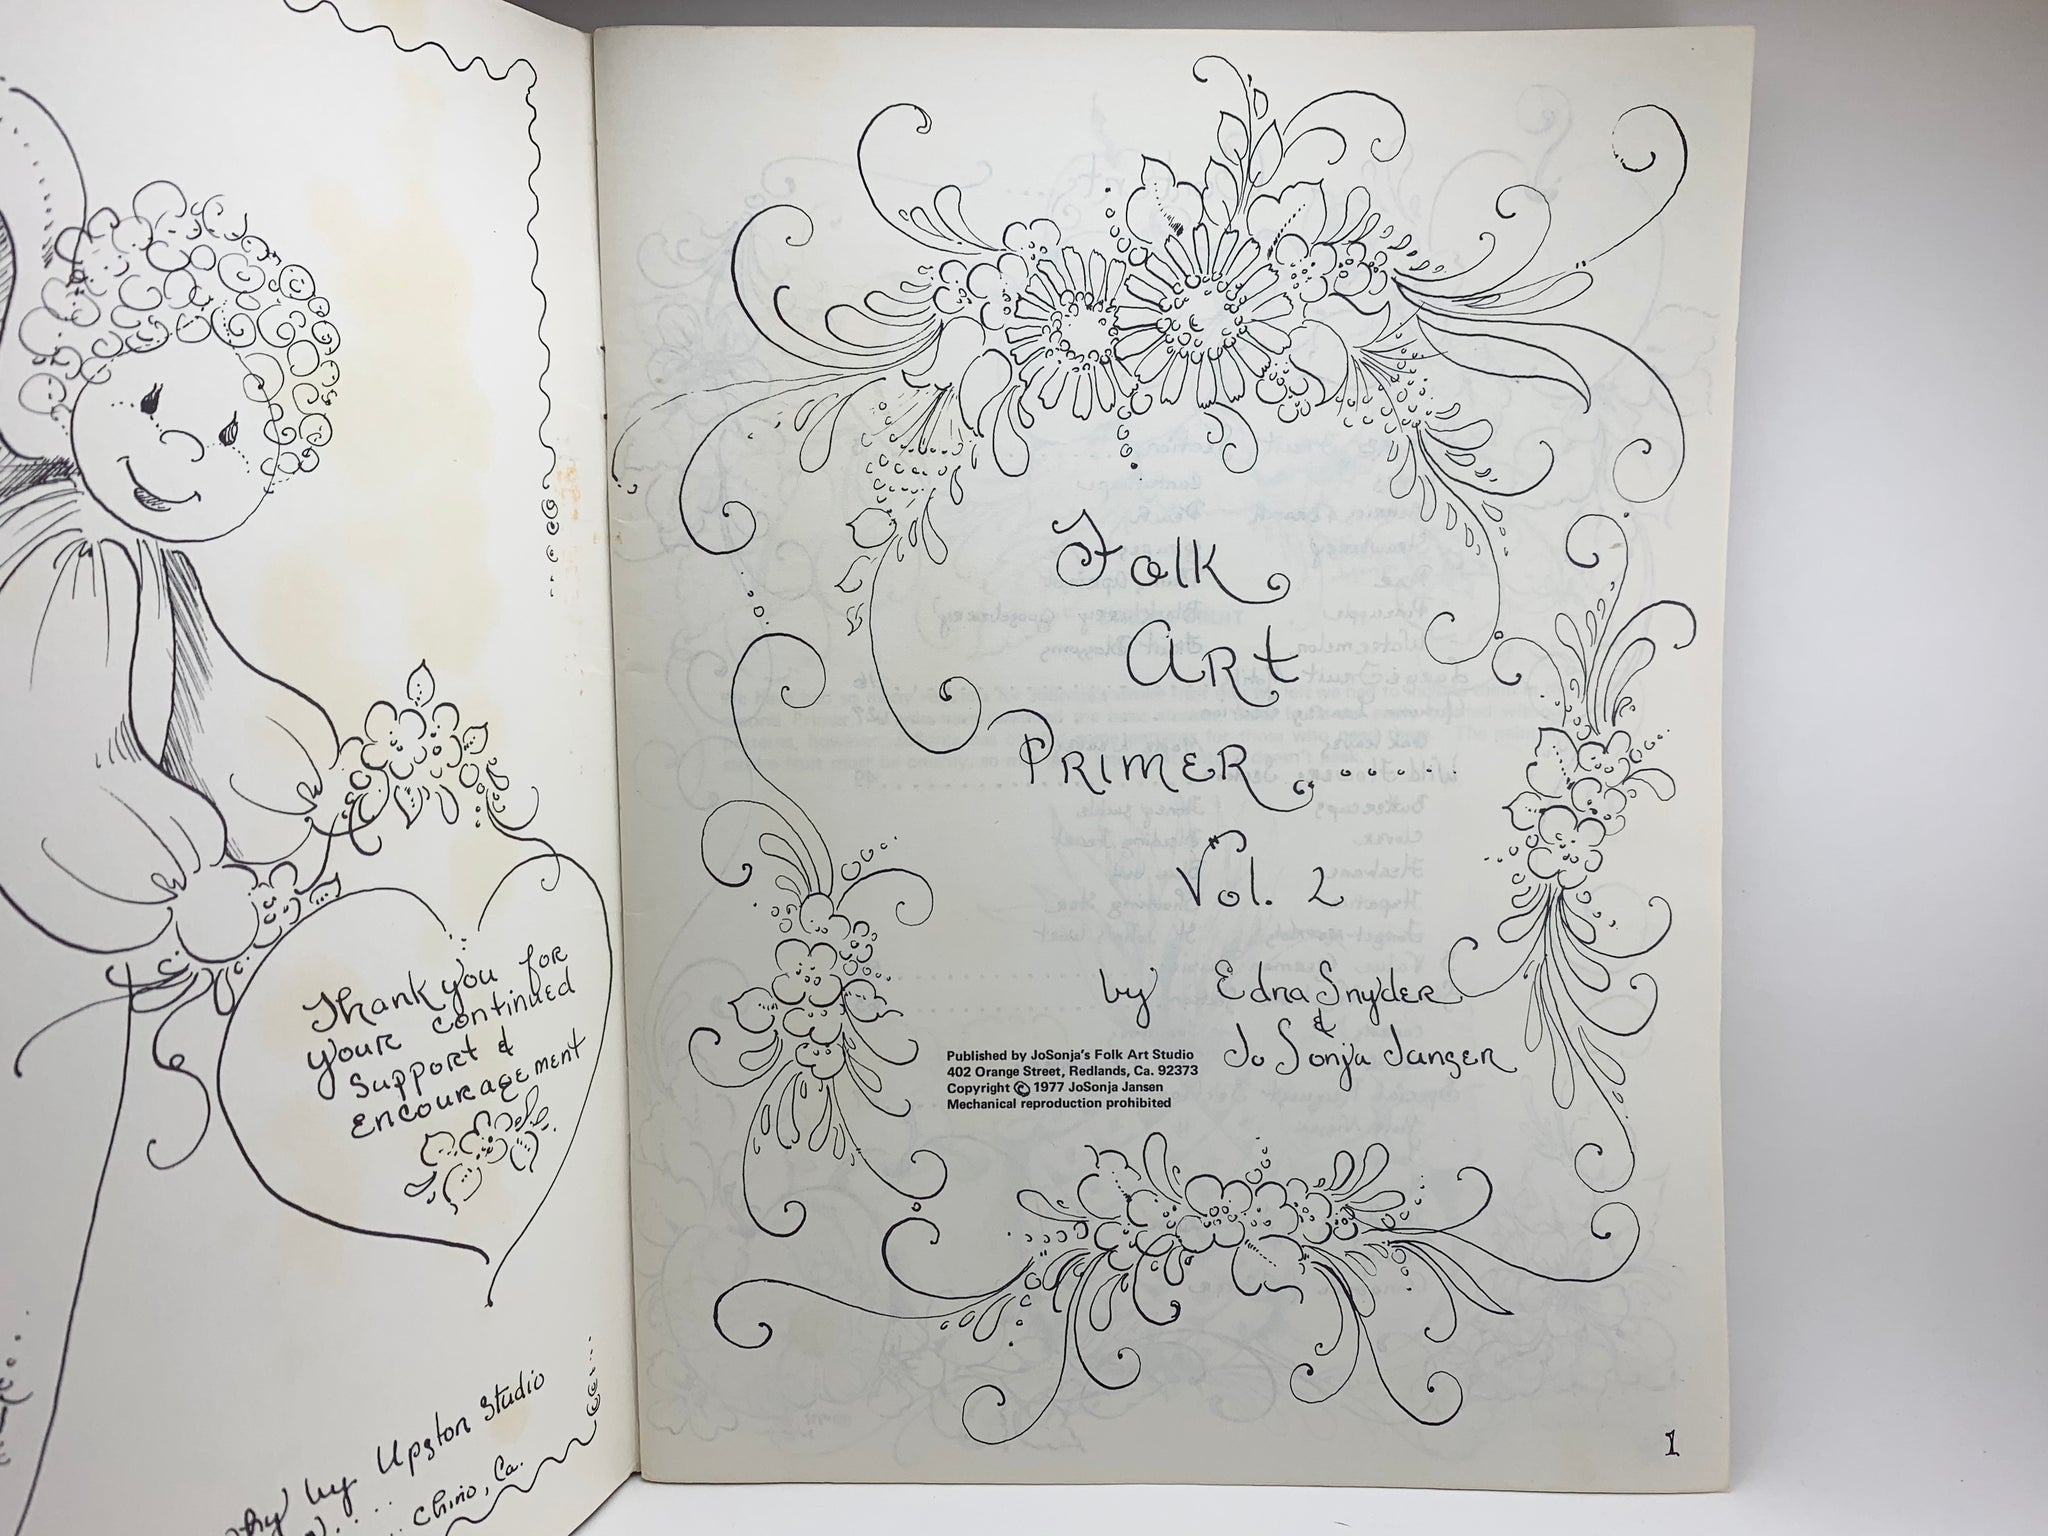 Thank you for
your continued
support &
encouragement
by Upston Studio
Chino, Ca.
Folk
Art
Primer........
Vol. 2
by Edna Snyder
&
Jo Sonja Jansen
Published by JoSonja's Folk Art Studio
402 Orange Street, Redlands, Ca. 92373
Copyright © 1977 JoSonja Jansen
Mechanical reproduction prohibited
1